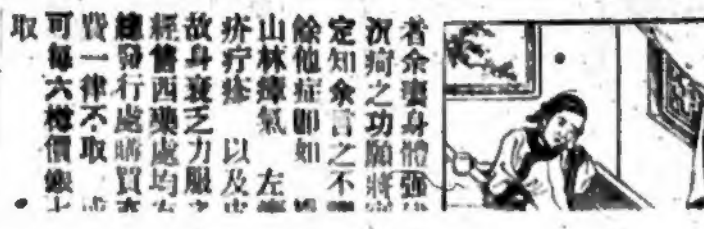 者余妻身體强
沉疴之功願將
定知余言之不
餘他症即如
山林瘴氣 左
疥疔疹 以及
故身衰乏力服
經售西藥處均
總發行處購買
費一律不取
可每六樽價銀
取